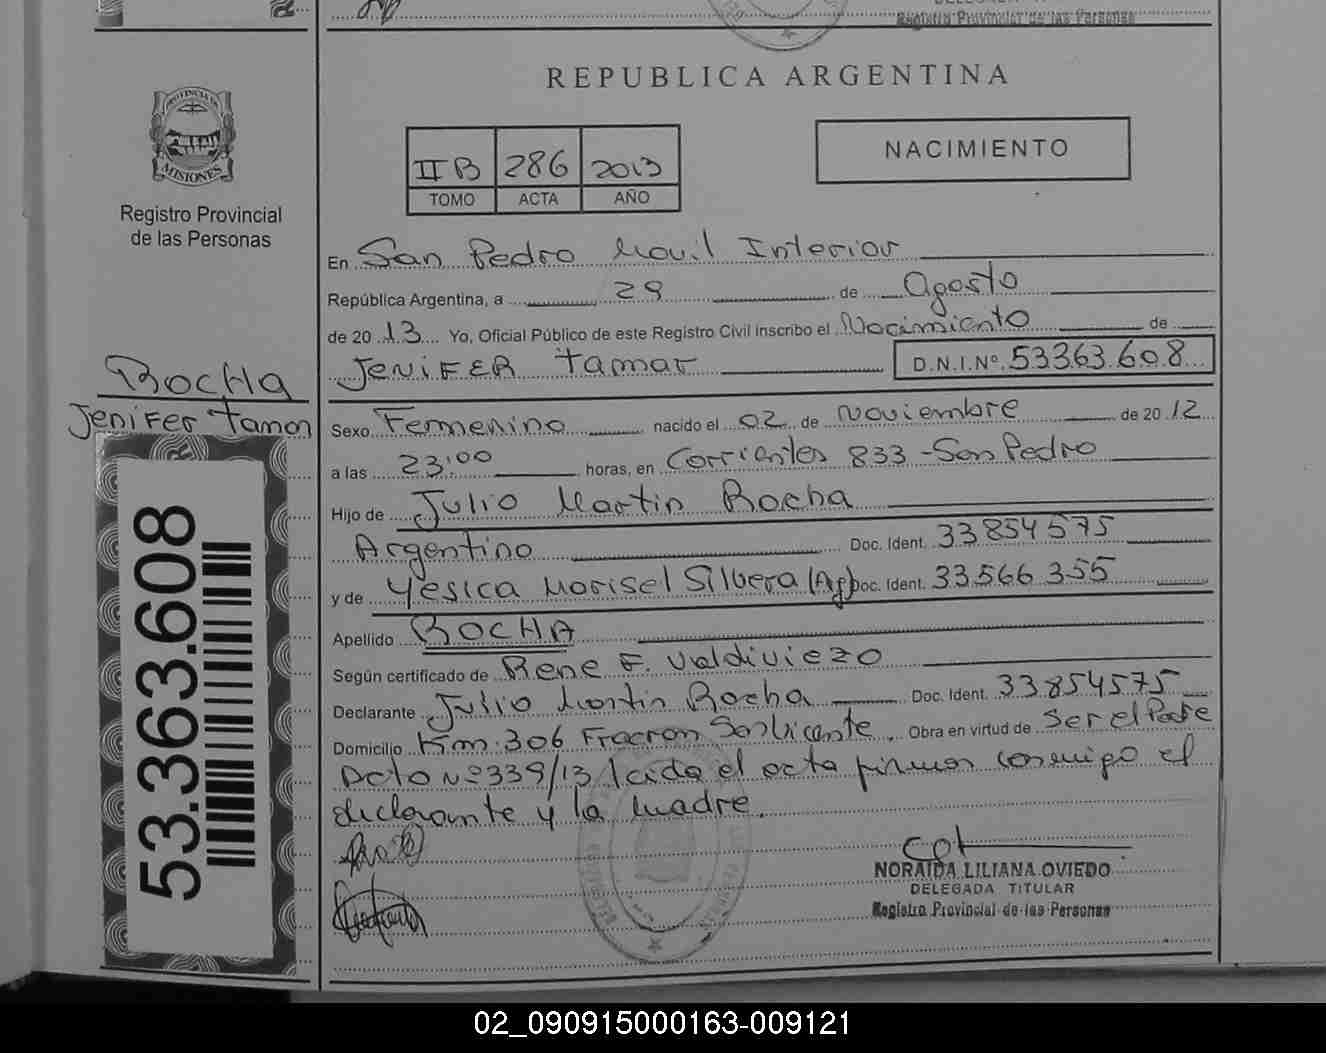 Registro Provincial de las Personas
PROVINCIA DE
MISIONES
Registro Provincial
de las Personas
ROCHA
Jenifer Tamar
53.363.608
REPUBLICA ARGENTINA
II B 286 2013
TOMO ACTA AÑO
NACIMIENTO
En San Pedro Movil Interior
República Argentina, a 29 de Agosto
de 20 13 Yo, Oficial Público de este Registro Civil inscribo el Nacimiento de
JENIFER Tamar D.N.I.Nº 53363.608
Sexo Femenino nacido el 02 de Noviembre de 20 12
a las 23:00 horas, en Corrientes 833 - San Pedro
Hijo de Julio Martin Rocha
Argentino Doc. Ident. 33854575
y de Yesica Marisel Silvera (Arg) Doc. Ident. 33.566.355
Apellido ROCHA
Según certificado de Rene F. Valdiviezo
Declarante Julio Martin Rocha Doc. Ident. 33854575
Domicilio Km. 306 Fracran San Vicente. Obra en virtud de Ser el Padre
Acta Nº 339/13 Leida el acta firman conmigo el
declarante y la madre.
NORAIDA LILIANA OVIEDO
DELEGADA TITULAR
Registro Provincial de las Personas
02_090915000163-009121